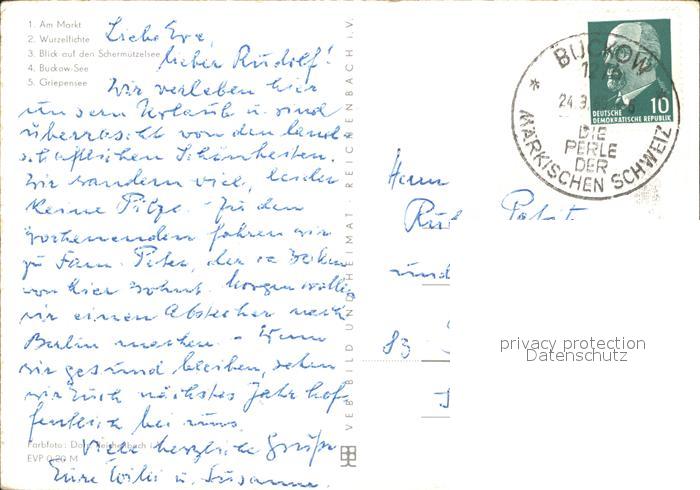 1. Am Markt
2. Wurzelfichte
3. Blick auf den Schermützelsee
4. Buckow-See
5. Griepensee
Liebe Eva,
lieber Rudolf!
Wir verleben hier
unsern Urlaub u. sind
überrascht von den land-
schaftlichen Schönheiten.
Wir wandern viel, leider
keine Pilze. Zu den
Wochenenden fahren wir
zu Fam. Peter, der ca
von hier wohnt. Morgen wollen
wir einen Abstecher nach
Berlin machen. - Wenn
wir gesund bleiben, sehen
wir Euch nächstes Jahr hof-
fentlich bei uns.
Viele herzliche Grüße
Eure Willi u. Susanne.
Farbfoto: Reichenbach i.
EVP 0,20 M
VEB BILD UND HEIMAT REICHENBACH i. V.
BUCKOW
24.3.
DIE
PERLE
DER
MÄRKISCHEN SCHWEIZ
10
DEUTSCHE
DEMOKRATISCHE REPUBLIK
Herrn
und
83
privacy protection
Datenschutz